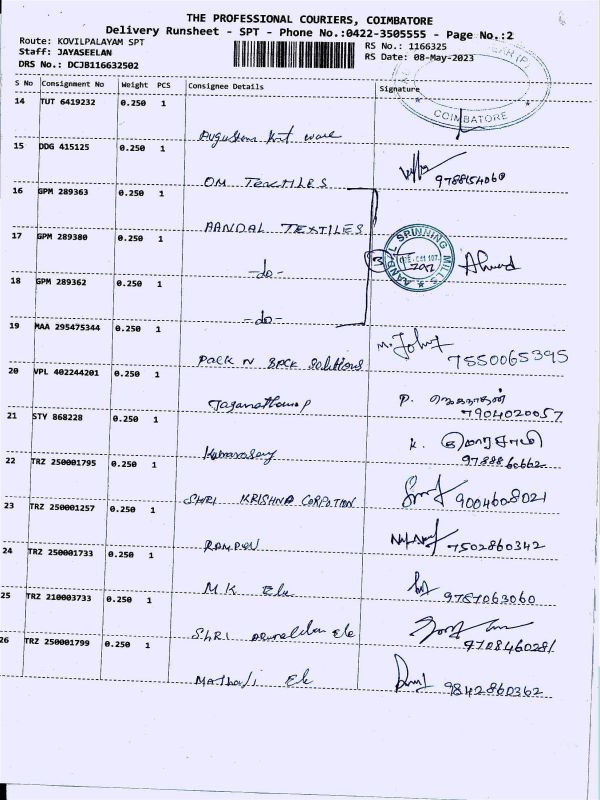 THE PROFESSIONAL COURIERS, COIMBATORE
Delivery Runsheet - SPT - Phone No.:0422-3505555 - Page No.:2
Route: KOVILPALAYAM SPT
Staff: JAYASEELAN
DRS No.: DCJB116632502
RS No.: 1166325
RS Date: 08-May-2023
COIMBATORE
S No Consignment No Weight PCS Consignee Details Signature
14 TUT 6419232 0.250 1
15 DDG 415125 0.250 1
OM TEXTILES 9788154060
16 GPM 289363 0.250 1
AANDAL TEXTILES
17 GPM 289380 0.250 1
-do-
AANDAL SPINNING MILLS
3
18 GPM 289362 0.250 1
-do-
19 MAA 295475344 0.250 1
PACK N SPCK Solutions M. Johny 7550065395
20 VPL 402244201 0.250 1
P. 7904020057
21 STY 868228 0.250 1
Kumarasamy K. குமாரசாமி
22 TRZ 250001795 0.250 1
SHRI KRISHNA CORPOTION 9004608021
23 TRZ 250001257 0.250 1
7502860342
24 TRZ 250001733 0.250 1
M.K Ele 9787063060
25 TRZ 210003733 0.250 1
SHRI Ele 9708460281
26 TRZ 250001799 0.250 1
Mathaji Ele 9842860362